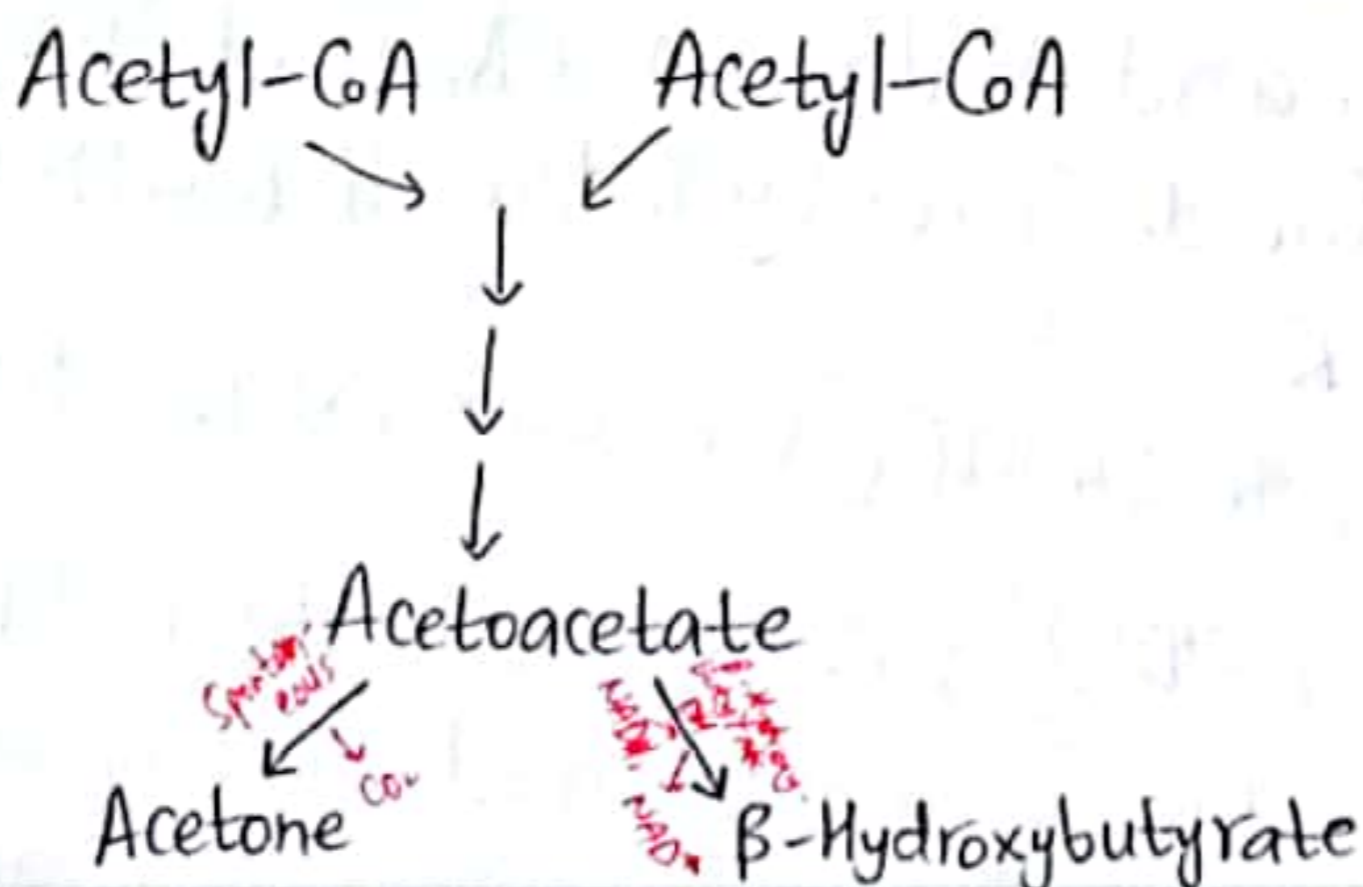 Acetyl-CoA Acetyl-CoA
Acetoacetate
Spontan
eous
CO₂
NAD+
Acetone
β-Hydroxybutyrate